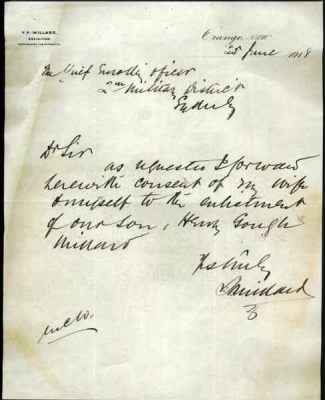 V. H. MILLARD,
SOLICITOR.
Orange, NSW
25 June 1918
The Chief Enrolling Officer
2nd Military District
Sydney
Dr Sir
as requested I forward
herewith consent of my wife
& myself to the enlistment
of our son, Henry Gough
Millard
Yrs truly
V Millard